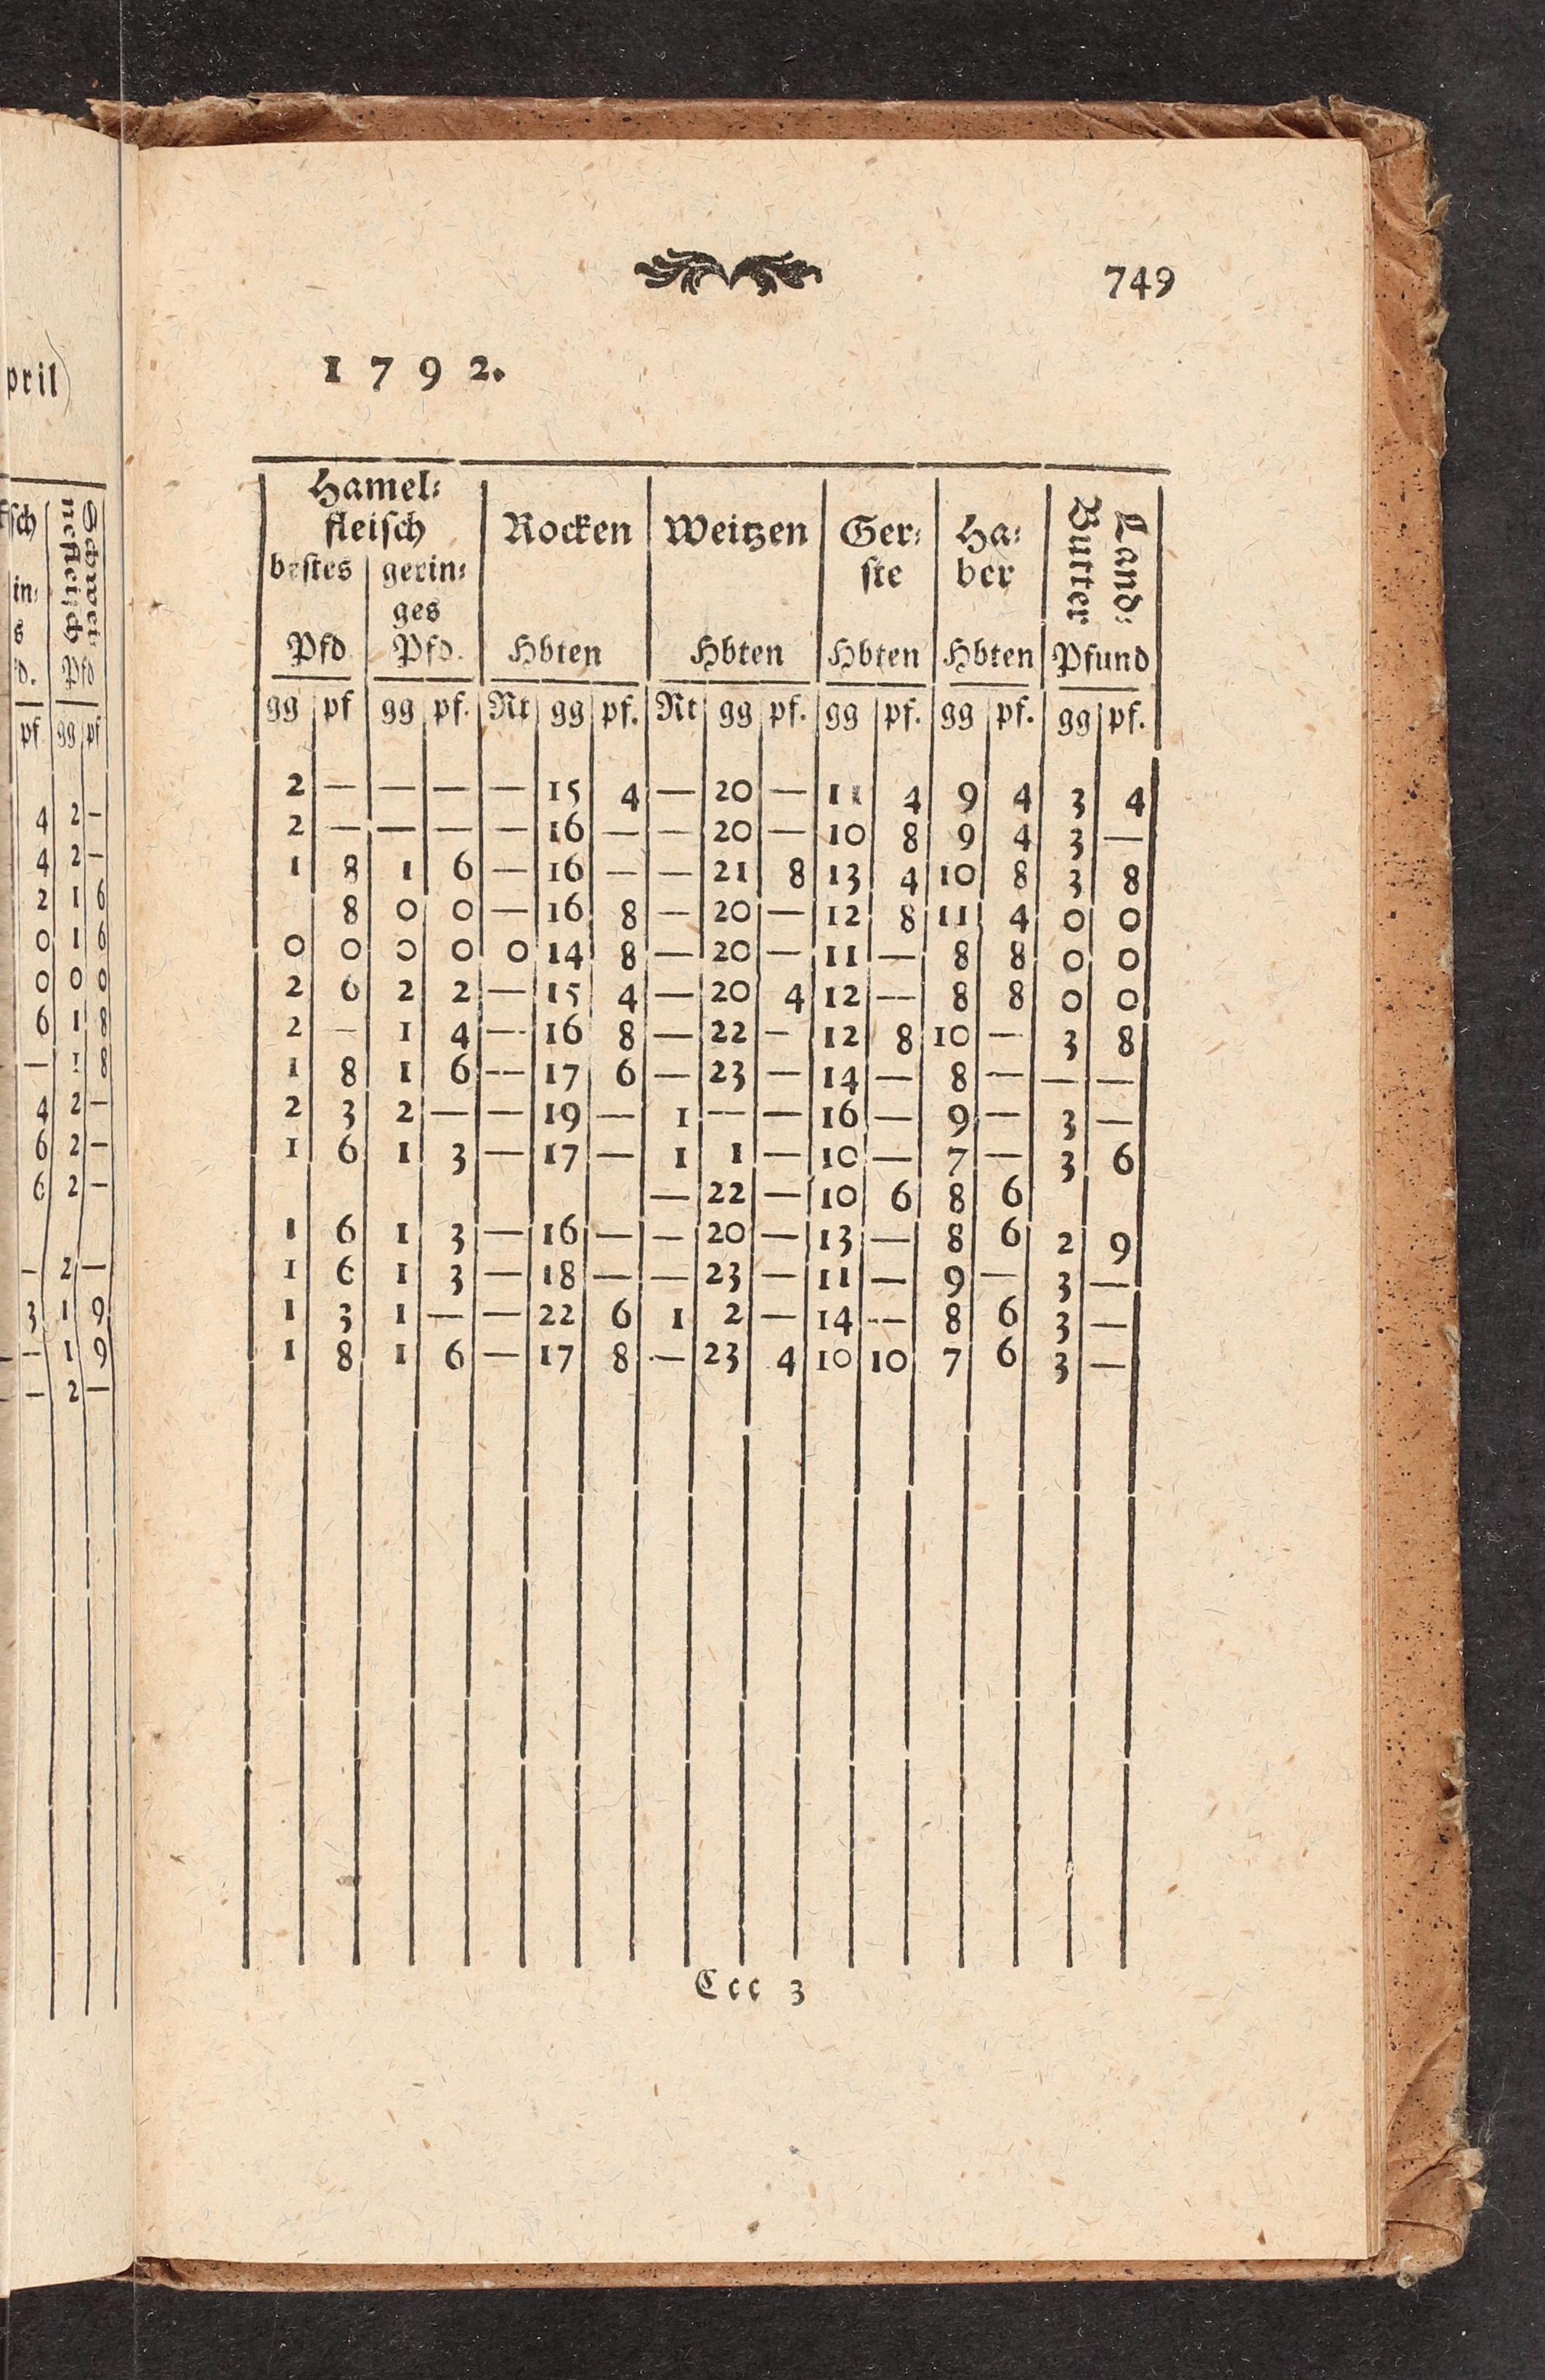 pril)
sch
in:
s
d.
pf.
Schwei:
nefleisch
Pfd
gg pf
4 2 –
4 2 –
2 1 6
0 1 6
0 0 0
6 1 8
— 1 8
4 2 –
6 2 –
6 2 –
– 2 —
3 1 9
– 1 9
– 2 –
749
1792.
Hamel:
fleisch
bestes gerin:
ges
Pfd Pfd.
Rocken
Hbten
Weitzen
Hbten
Ger:
ste
Hbten
Ha:
ber
Hbten
Land:
Butter
Pfund
gg pf gg pf. Rt gg pf. Rt gg pf. gg pf. gg pf. gg pf.
2 — — — — 15 4 — 20 — 11 4 9 4 3 4
2 — — — — 16 — — 20 — 10 8 9 4 3 —
1 8 1 6 — 16 — — 21 8 13 4 10 8 3 8
8 0 0 — 16 8 — 20 — 12 8 11 4 0 0
0 0 0 0 0 14 8 — 20 — 11 — 8 8 0 0
2 6 2 2 — 15 4 — 20 4 12 — 8 8 0 0
2 — 1 4 — 16 8 — 22 — 12 8 10 — 3 8
1 8 1 6 — 17 6 — 23 — 14 — 8 — — —
2 3 2 — — 19 — 1 — — 16 — 9 — 3 —
1 6 1 3 — 17 — 1 1 — 10 — 7 — 3 6
— 22 — 10 6 8 6
1 6 1 3 — 16 — — 20 — 13 — 8 6 2 9
1 6 1 3 — 18 — — 23 — 11 — 9 — 3 —
1 3 1 — — 22 6 1 2 — 14 — 8 6 3 —
1 8 1 6 — 17 8 — 23 4 10 10 7 6 3 —
Ccc 3